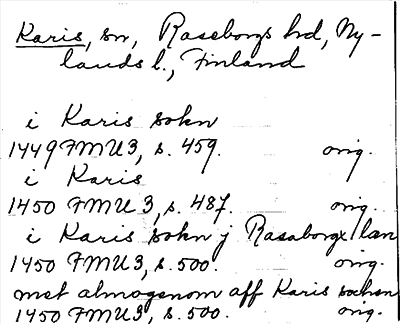 Karis, sn, Raseborgs hd, Ny-
lands l., Finland
i Karis sokn
1449 FMU 3, s. 459. orig.
i Karis
1450 FMU 3, s. 487. orig.
i Karis sokn j Rasaborgx læn
1450 FMU 3, s. 500. orig.
met almogenom aff Karis sochen
1450 FMU 3, s. 500. orig.